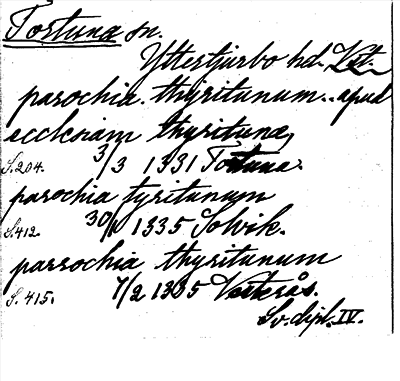 Tortuna sn.
Yttertjurbo hd. Vst.
parochia thyritunum.. apud
ecclesiam thyrituna,
S. 204. 3/3 1331 Tortuna.
parochia tyritunum
S. 412. 30/1 1335 Solvik.
parrochia thyritunum
S. 415. 7/2 1335 Västerås.
Sv. dipl. IV.